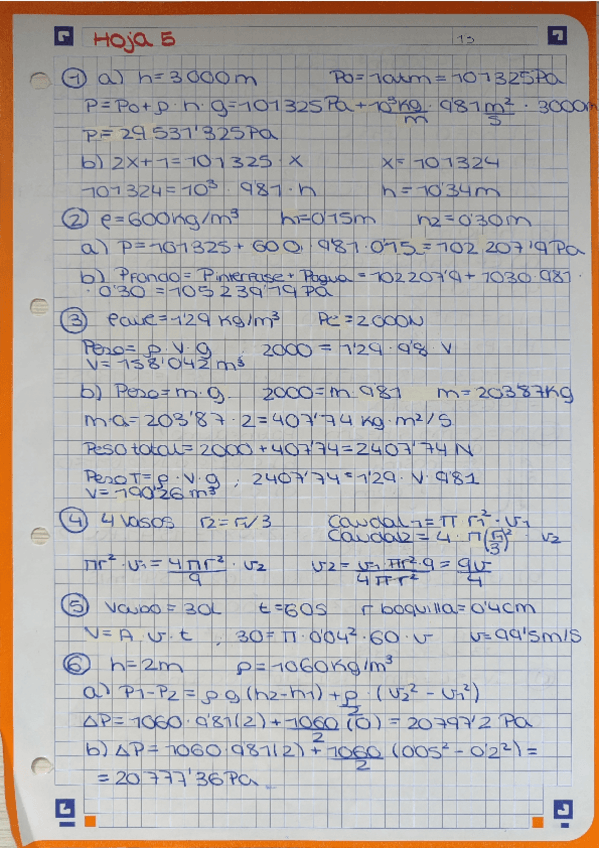 Hoja 5
15
① a) h=3000m P0=1atm=101325Pa
P=P0+ρ·h·g=101325Pa+10³kg/m · 9'81 m²/s · 3000m
P=29 531'325Pa
b) 2x+1=101325·x x=101324
101324=10³·9'81·h h=10'34m
② ρ=600kg/m³ h=0'15m h2=0'30m
a) P=101325+600·9'81·0'15=102 207'9Pa
b) Pfondo=Pinterfase+Pagua=102207'9+1030·9'81·
·0'30=105 239'19 Pa
③ ρaire=1'29 kg/m³ Pe=2000N
Peso=ρ·V·g, 2000=1'29·9'8 V
V=158'042 m³
b) Peso=m·g. 2000=m·9'81 m=203'87kg
m·a=203'87·2=407'74 kg·m²/s
Peso total=2000+407'74=2407'74 N
Peso T=ρ·V·g, 2407'74=1'29·V·9'81
V=190'26 m³
④ 4 vasos r2=r1/3 Caudal1=π r1²·v1
Caudal2=4·π(r1/3)²·v2
πr²·v1=4πr²/9·v2 v2=v1 πr²·9/4πr²=9v/4
⑤ Vcubo=30L t=60s r boquilla=0'4cm
V=A·v·t, 30=π·0'04²·60·v v=99'5m/s
⑥ h=2m ρ=1060kg/m³
a) P1-P2=ρg(h2-h1)+ρ/2·(v2²-v1²)
ΔP=1060·9'81(2)+1060/2(0)=20797'2 Pa
b) ΔP=1060·981(2)+1060/2(0'05²-0'2²)=
=20 777'36Pa